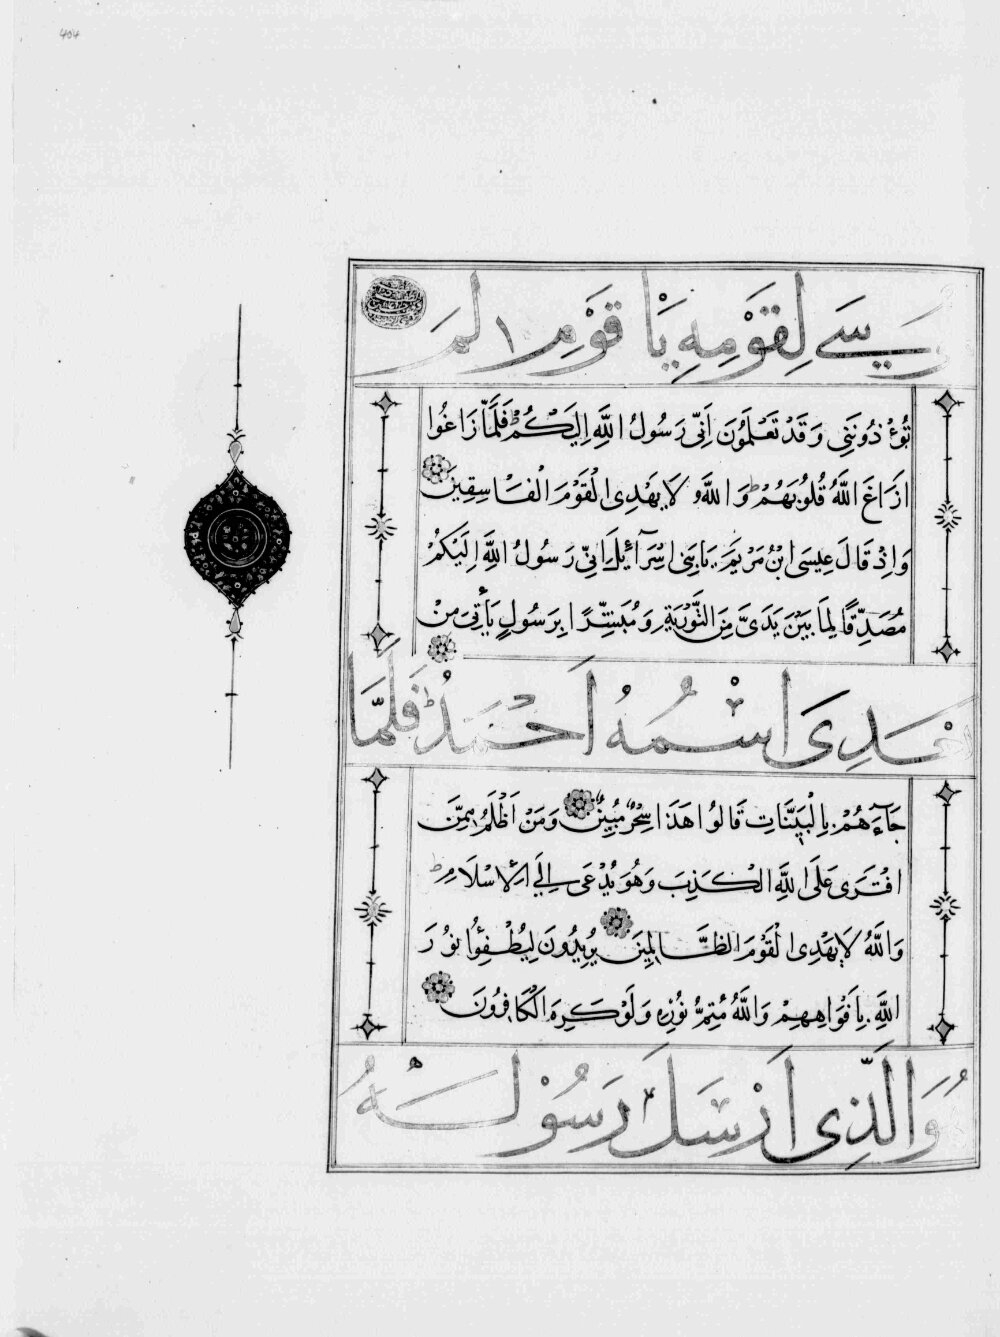 404
سَى لِقَوْمِهِ يَا قَوْمِ لِمَ
تُؤْذُونَنِي وَقَدْ تَعْلَمُونَ اَنِّي رَسُولُ اللَّهِ اِلَيْكُمْ فَلَمَّا زَاغُوا
ازَاغَ اللَّهُ قُلُوبَهُمْ وَاللَّهُ لَا يَهْدِى الْقَوْمَ الْفَاسِقِينَ
وَاِذْ قَالَ عِيسَى ابْنُ مَرْيَمَ يَا بَنِى اِسْرَآئِيلَ اِنِّي رَسُولُ اللَّهِ اِلَيْكُمْ
مُصَدِّقًا لِمَا بَيْنَ يَدَىَّ مِنَ التَّوْرٰيةِ وَمُبَشِّرًا بِرَسُولٍ يَأْتِى مِنْ
بَعْدِى اسْمُهُ اَحْمَدُ فَلَمَّا
جَاءَهُمْ بِالْبَيِّنَاتِ قَالُوا هَذَا سِحْرٌ مُبِينٌ وَمَنْ اَظْلَمُ مِمَّنِ
افْتَرَى عَلَى اللَّهِ الْكَذِبَ وَهُوَ يُدْعَى اِلَى الْاِسْلَامِ
وَاللَّهُ لَا يَهْدِى الْقَوْمَ الظَّالِمِينَ يُرِيدُونَ لِيُطْفِؤُا نُورَ
اللَّهِ بِاَفْوَاهِهِمْ وَاللَّهُ مُتِمُّ نُورِهِ وَلَوْ كَرِهَ الْكَافِرُونَ
هُوَ الَّذِى اَرْسَلَ رَسُولَهُ